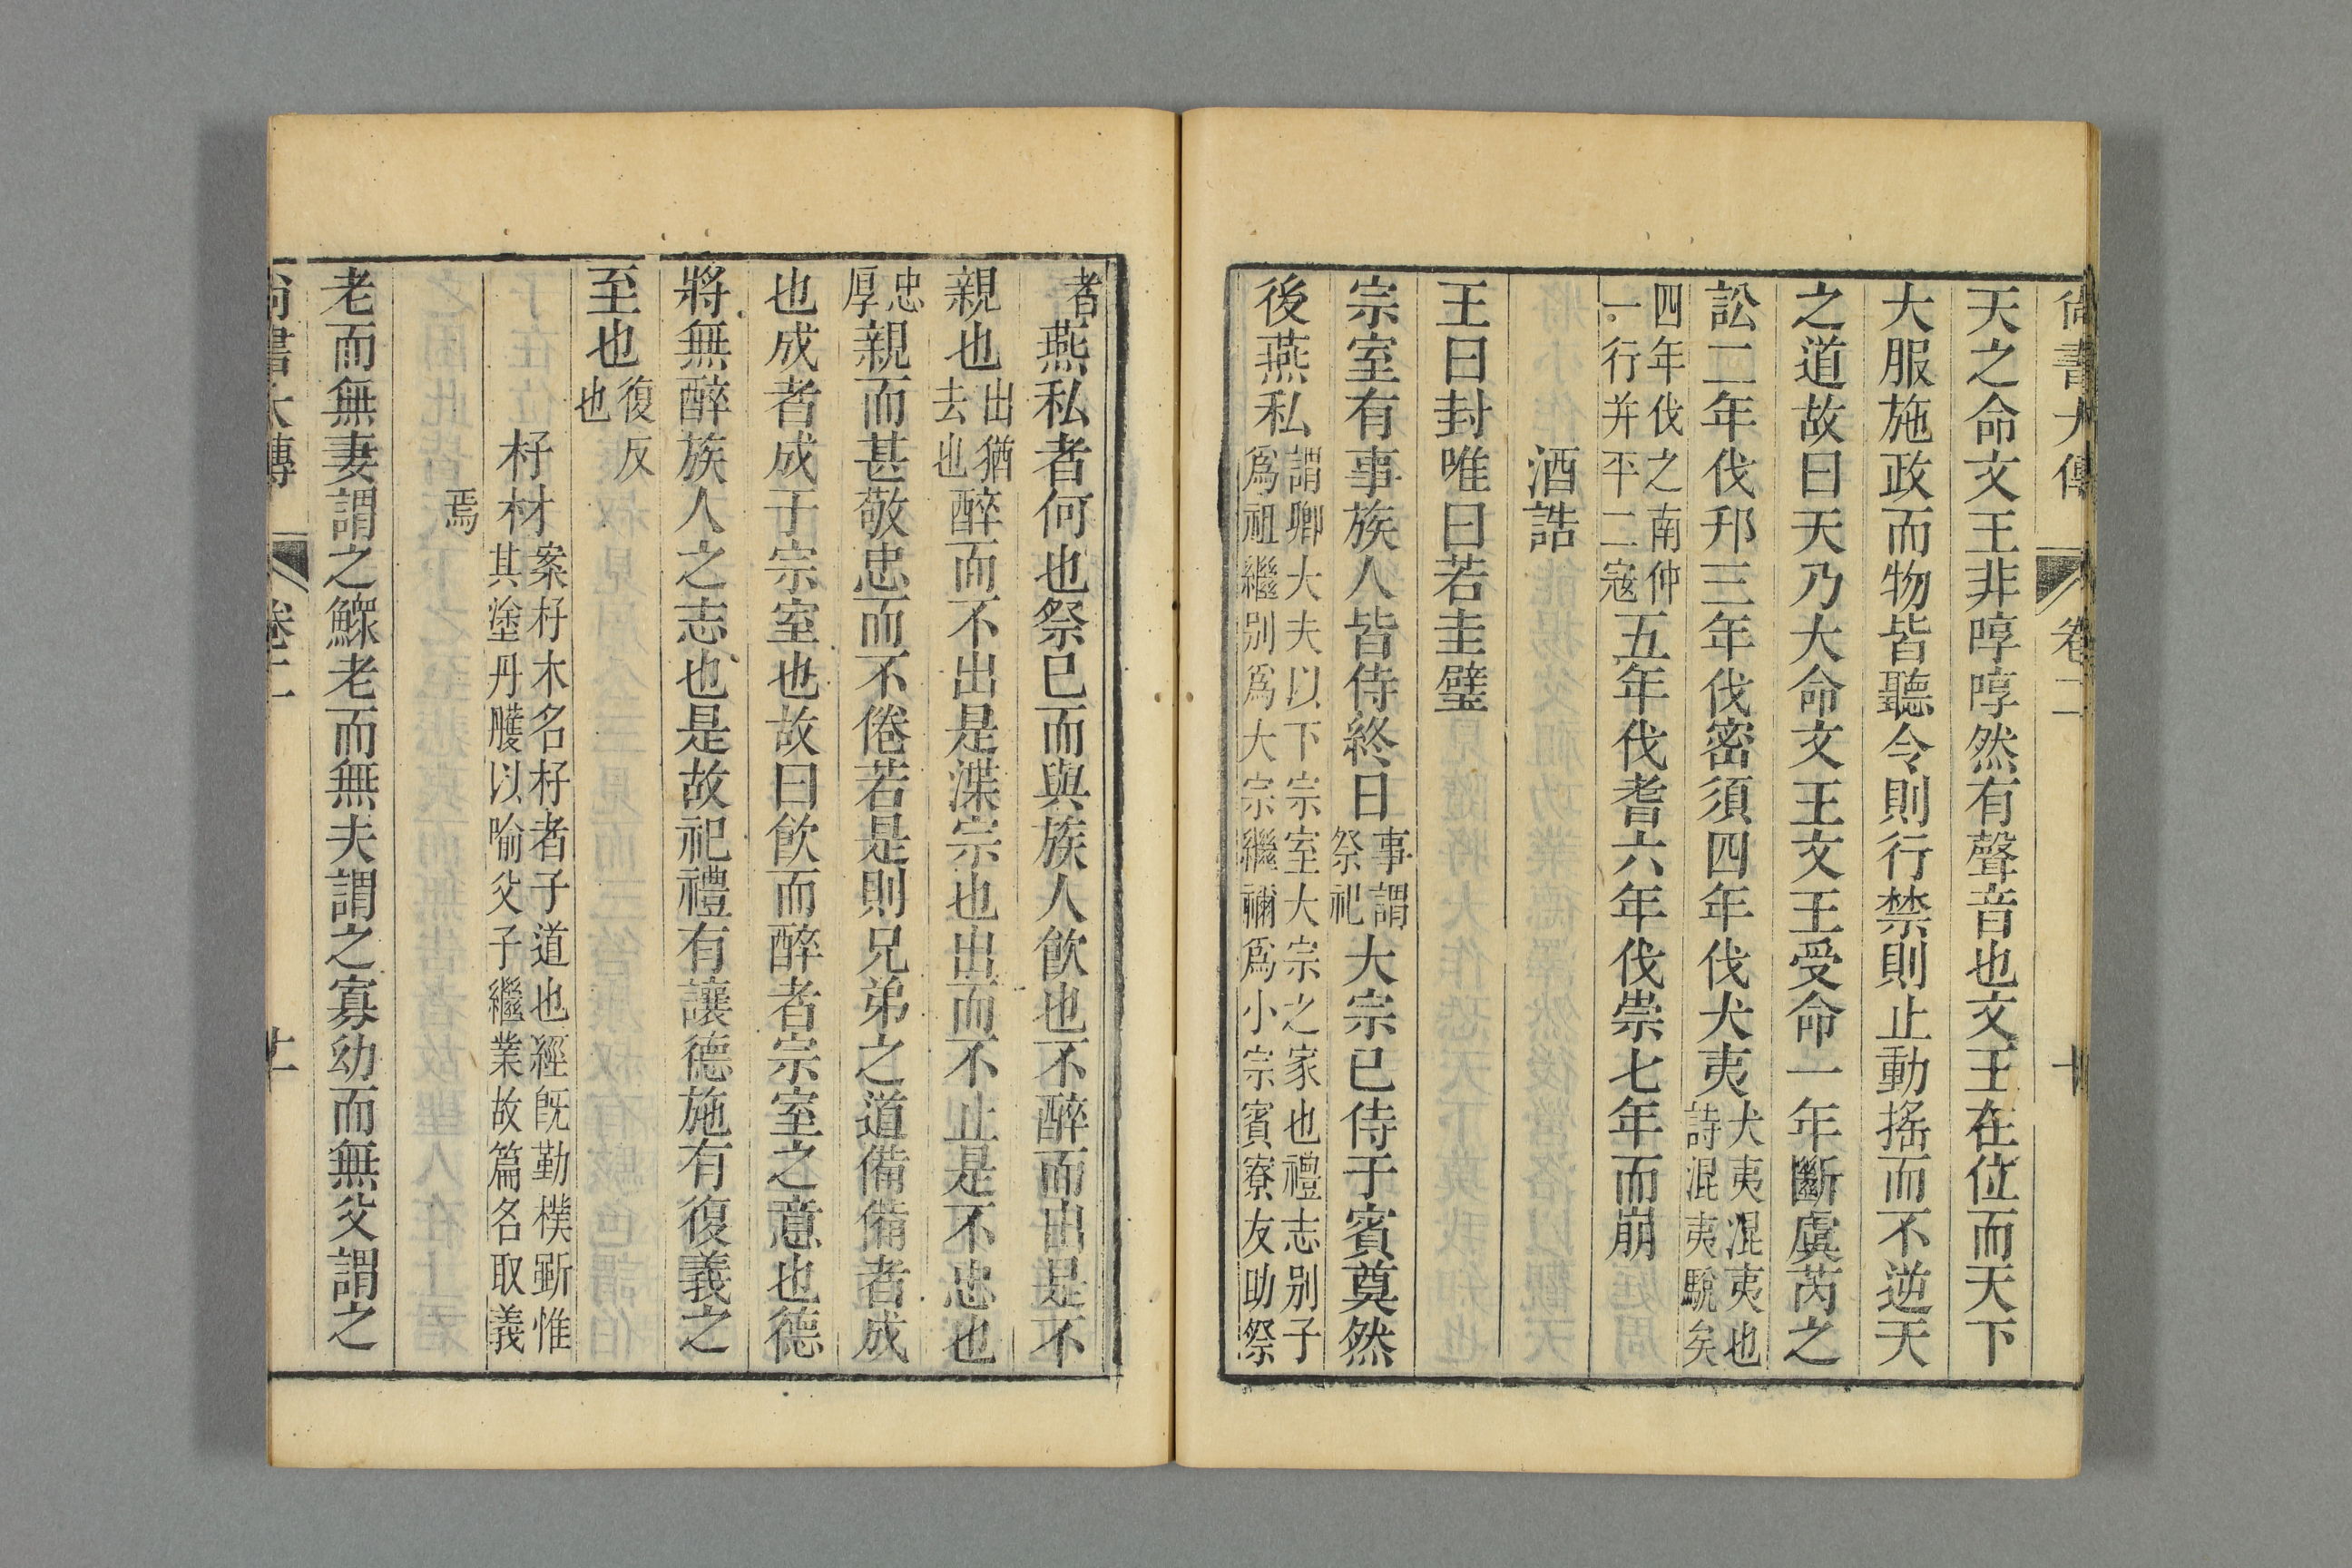 尚書大傳 卷二 十
天之命文王非啍啍然有聲音也文王在位而天下
大服施政而物皆聽令則行禁則止動搖而不逆天
之道故曰天乃大命文王文王受命一年斷虞芮之
訟二年伐邘三年伐密須四年伐犬夷犬夷混夷也詩混夷駾矣
四年伐之南仲一行并平二寇五年伐耆六年伐崇七年而崩
酒誥
王曰封唯曰若圭璧
宗室有事族人皆侍終日事謂祭祀大宗已侍于賓奠然
後燕私謂卿大夫以下宗室大宗之家也禮志别子爲祖繼别爲大宗繼禰爲小宗賓寮友助祭
者燕私者何也祭已而與族人飮也不醉而出是不
親也出猶去也醉而不出是渫宗也出而不止是不忠也
忠厚親而甚敬忠而不倦若是則兄弟之道備備者成
也成者成于宗室也故曰飮而醉者宗室之意也德
將無醉族人之志也是故祀禮有讓德施有復義之
至也復反也
杍材案杍木名杍者子道也經既勤樸斲惟其塗丹雘以喻父子繼業故篇名取義
焉
老而無妻謂之鰥老而無夫謂之寡幼而無父謂之
尚書大傳 卷二 十一